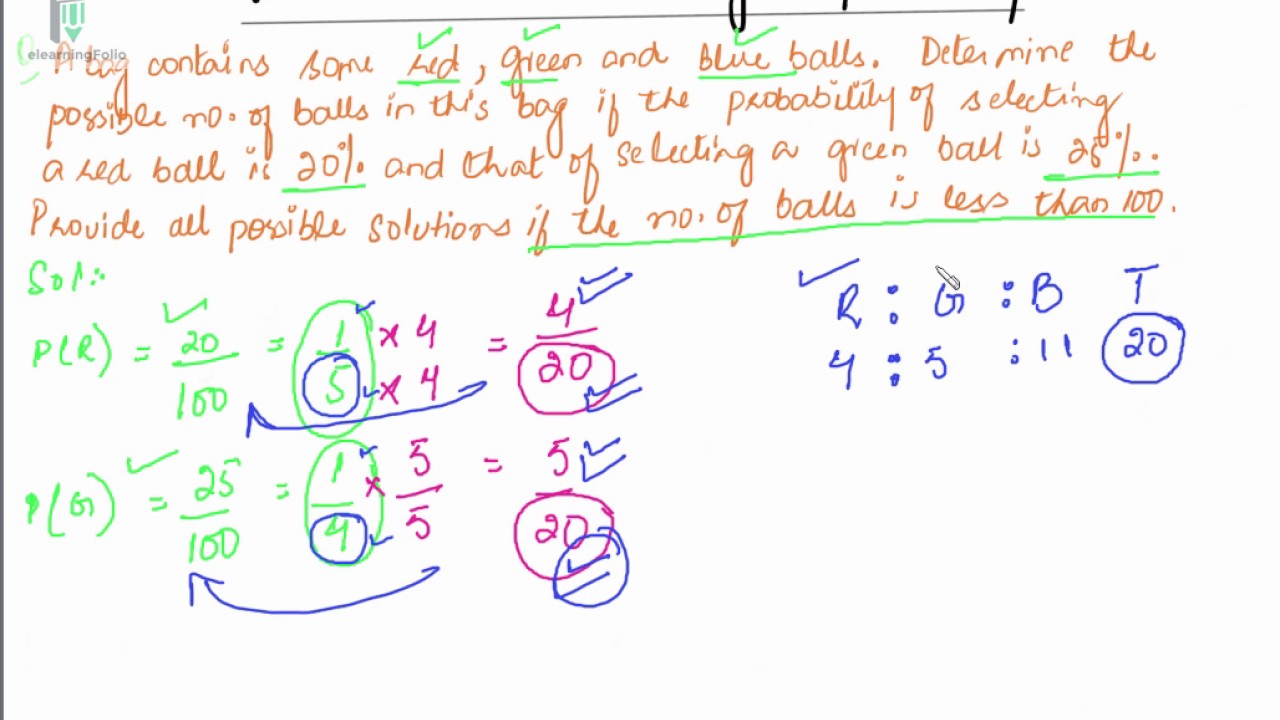 elearningFolio
Q A bag contains some red, green and blue balls. Determine the
possible no. of balls in this bag if the probability of selecting
a red ball is 20% and that of selecting a green ball is 25%.
Provide all possible solutions if the no. of balls is less than 100.
Sol:-
P(R) = 20/100 = 1/5 × 4 × 4 = 4/20
P(G) = 25/100 = 1/4 × 5/5 = 5/20
R : G : B T
4 : 5 : 11 20